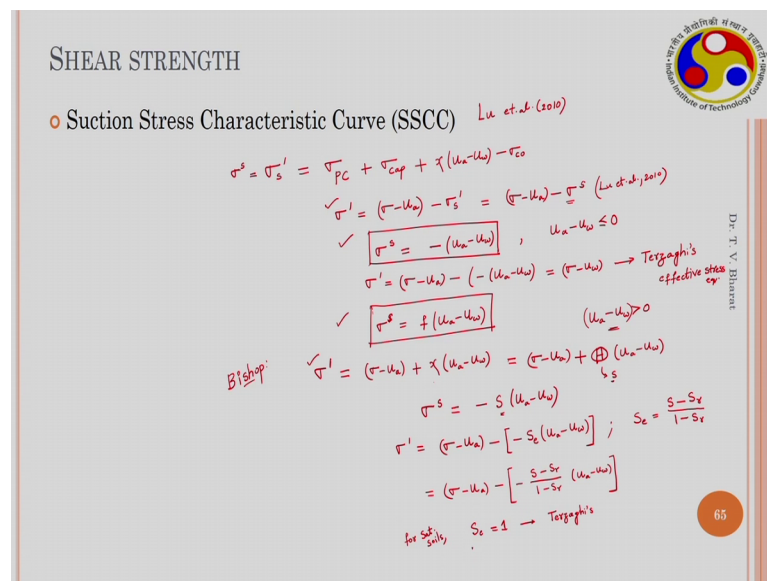 SHEAR STRENGTH
भारतीय प्रौद्योगिकी संस्थान गुवाहाटी
Indian Institute of Technology Guwahati
Suction Stress Characteristic Curve (SSCC) Lu et.al.(2010)
σˢ = σₛ' = σ_PC + σ_cap + χ(uₐ-u_w) - σ_co
✓ σ' = (σ-uₐ) - σₛ' = (σ-uₐ) - σˢ (Lu et.al.,2010)
✓ σˢ = -(uₐ-u_w) , uₐ-u_w ≤ 0
σ' = (σ-uₐ) - (-(uₐ-u_w) = (σ-u_w) → Terzaghi's
effective stress
eq.
✓ σˢ = f(uₐ-u_w) (uₐ-u_w)>0
Bishop: ✓ σ' = (σ-uₐ) + χ(uₐ-u_w) = (σ-uₐ) + Ⓗ (uₐ-u_w)
↳ S
σˢ = - S (uₐ-u_w)
σ' = (σ-uₐ) - [-Sₑ(uₐ-u_w)] ; Sₑ = (S-Sᵣ)/(1-Sᵣ)
= (σ-uₐ) - [- (S-Sᵣ)/(1-Sᵣ) (uₐ-u_w)]
for sat. soils, Sₑ = 1 → Terzaghi's
Dr. T. V. Bharat
65